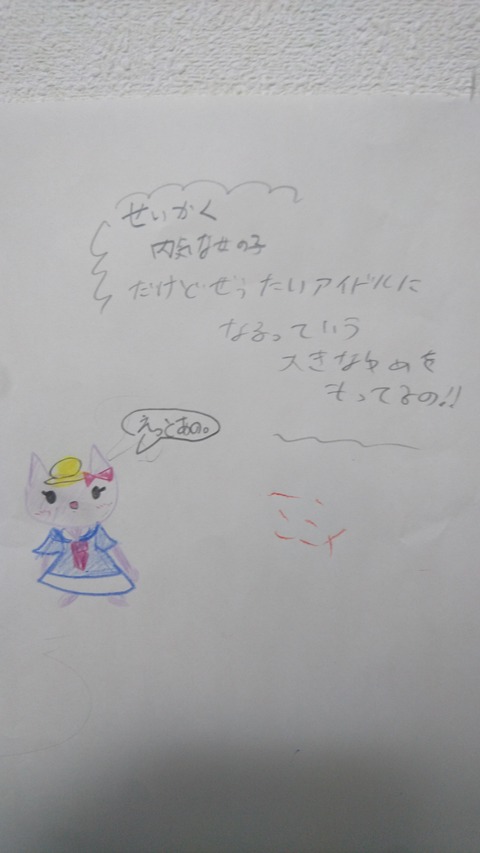 せいかく
内気な女の子
だけどぜったいアイドルに
なるっていう
大きなゆめを
もってるの!!
えっとあの。